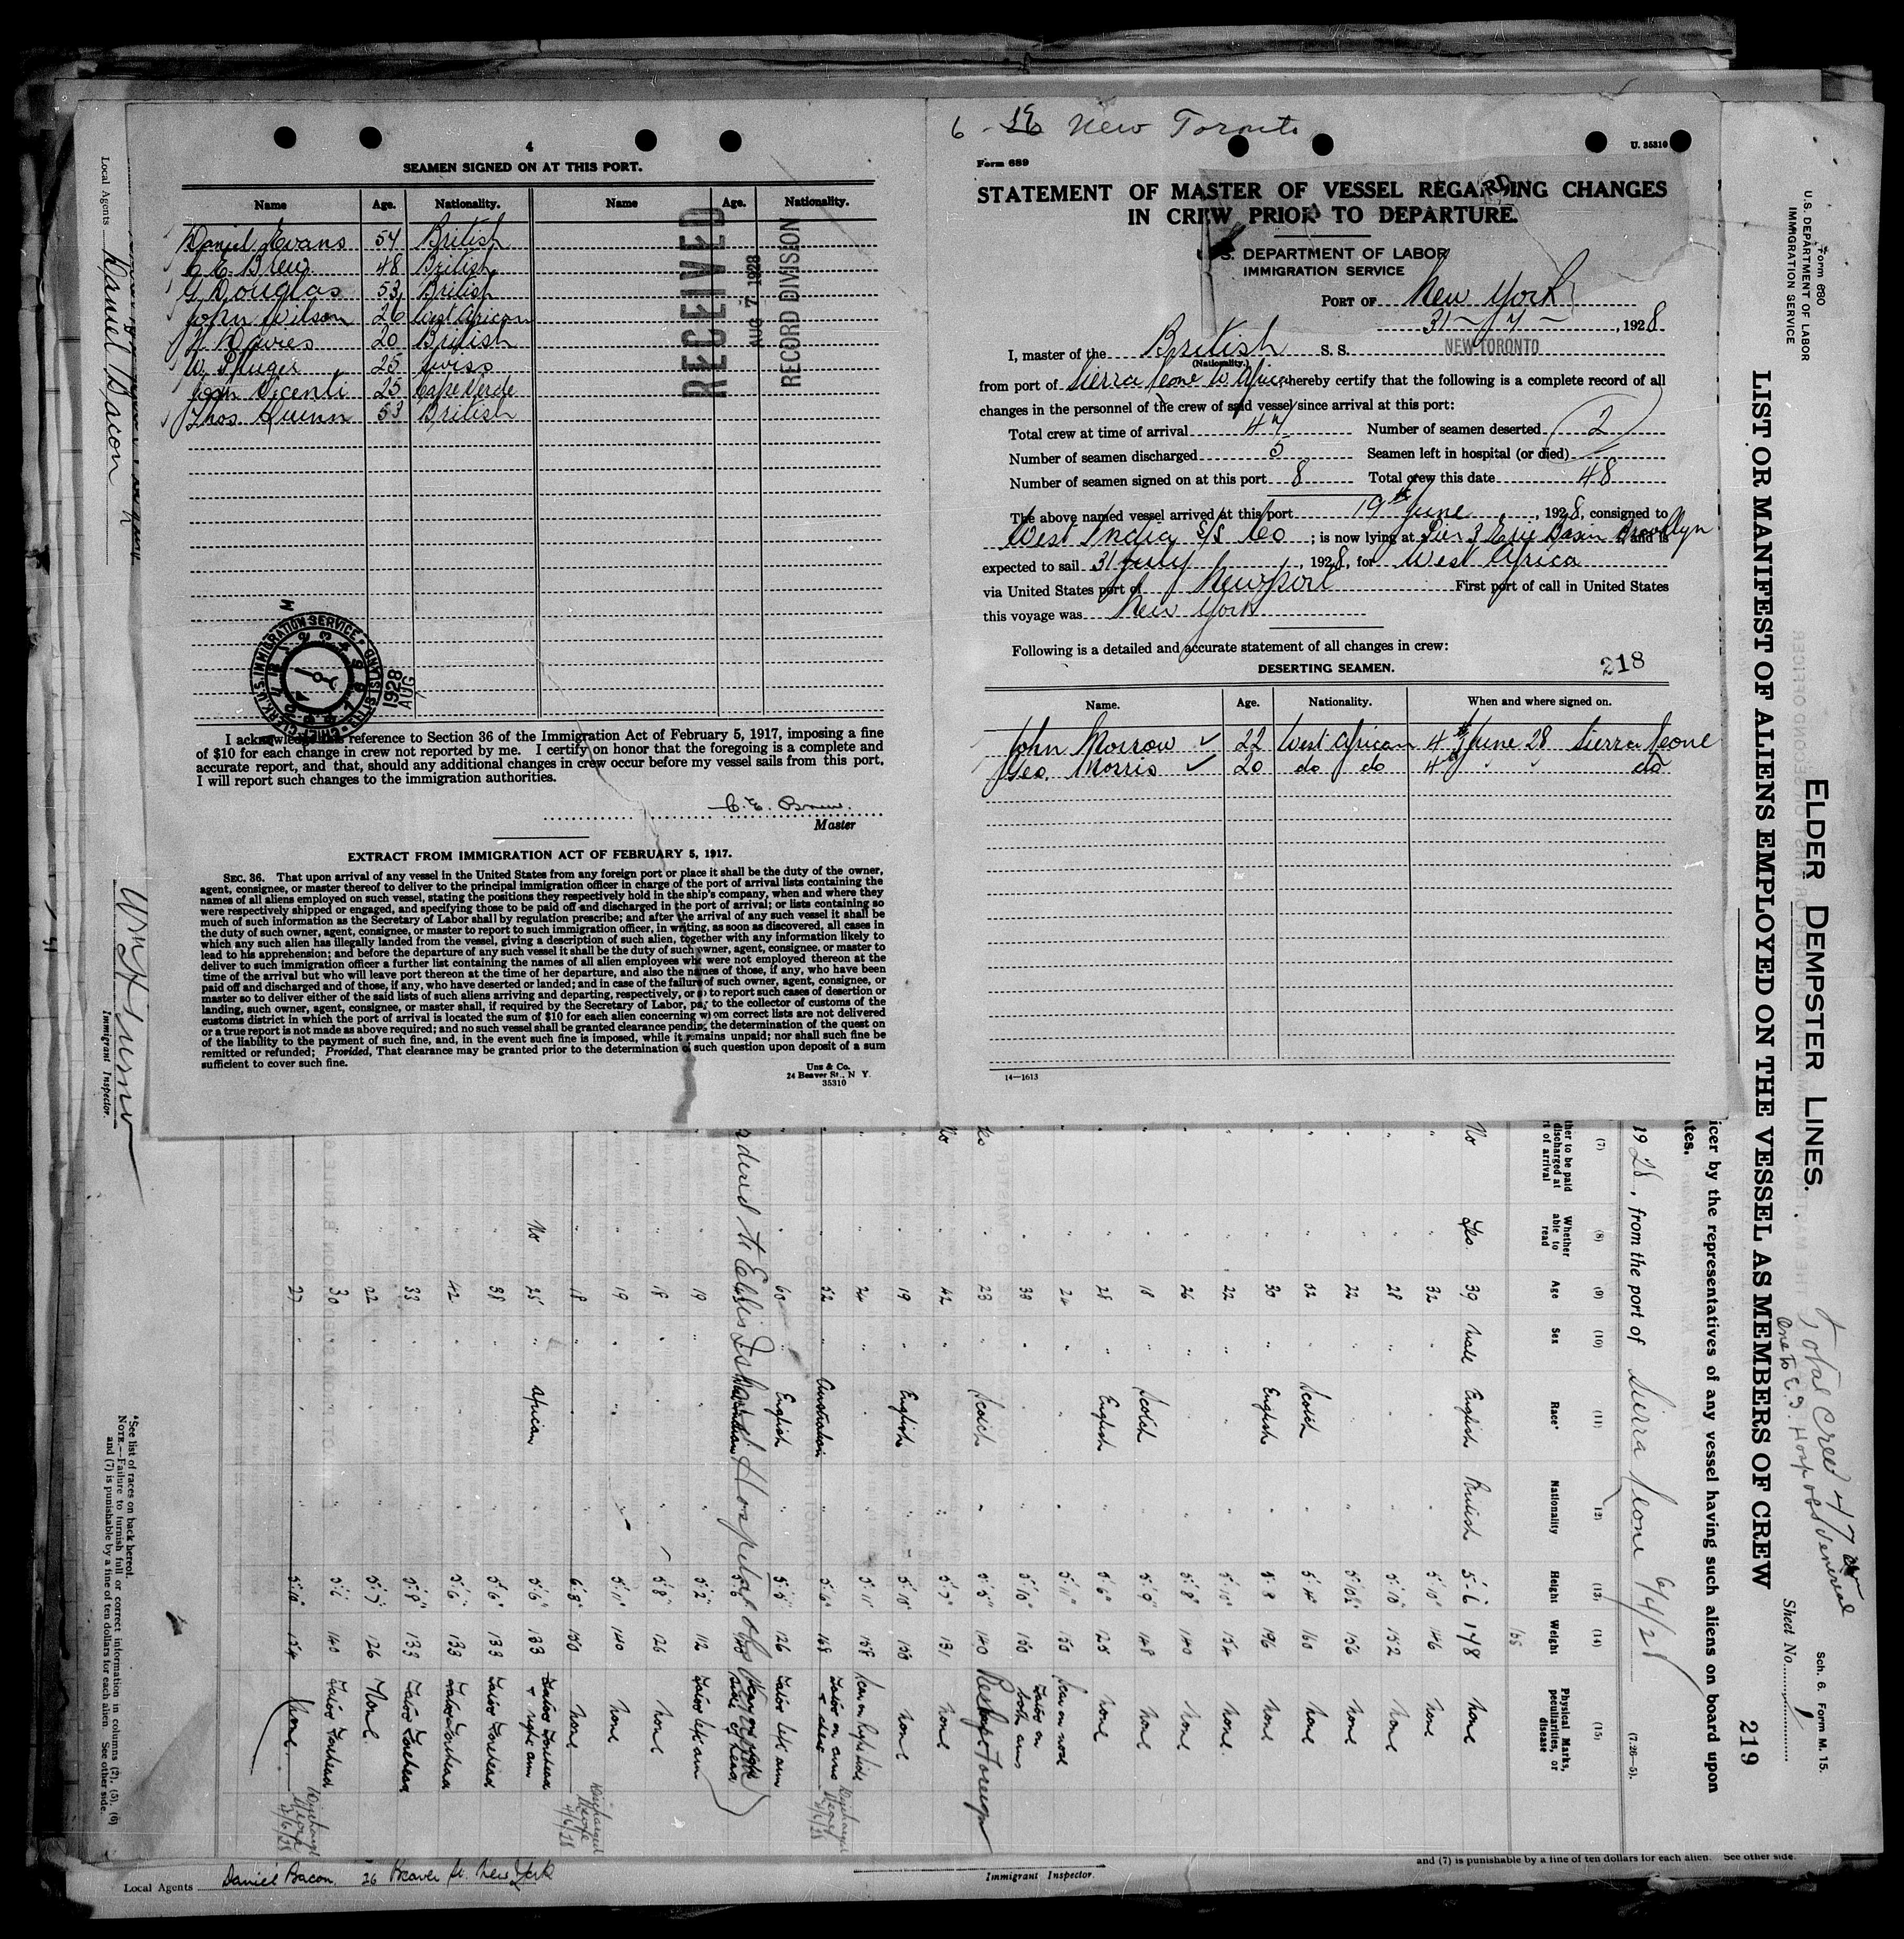 4
SEAMEN SIGNED ON AT THIS PORT.
Name Age. Nationality. Name Age. Nationality.
Daniel Evans 54 British
C. E. Brew 48 British
G Douglas 53 British
John Wilson 26 West African
Davies 20 British
W. Pfluger 25 Swiss
25 Cape Verde
Thos. Quinn 53 British
RECEIVED
AUG 7 1928
RECORD DIVISION
U.S. IMMIGRATION SERVICE
1928
AUG
I acknowledge this reference to Section 36 of the Immigration Act of February 5, 1917, imposing a fine
of $10 for each change in crew not reported by me. I certify on honor that the foregoing is a complete and
accurate report, and that, should any additional changes in crew occur before my vessel sails from this port,
I will report such changes to the immigration authorities.
C. E. Brew.
Master
EXTRACT FROM IMMIGRATION ACT OF FEBRUARY 5, 1917.
SEC. 36. That upon arrival of any vessel in the United States from any foreign port or place it shall be the duty of the owner,
agent, consignee, or master thereof to deliver to the principal immigration officer in charge of the port of arrival lists containing the
names of all aliens employed on such vessel, stating the positions they respectively hold in the ship's company, when and where they
were respectively shipped or engaged, and specifying those to be paid off and discharged in the port of arrival; or lists containing so
much of such information as the Secretary of Labor shall by regulation prescribe; and after the arrival of any such vessel it shall be
the duty of such owner, agent, consignee, or master to report to such immigration officer, in writing, as soon as discovered, all cases in
which any such alien has illegally landed from the vessel, giving a description of such alien, together with any information likely to
lead to his apprehension; and before the departure of any such vessel it shall be the duty of such owner, agent, consignee, or master to
deliver to such immigration officer a further list containing the names of all alien employees who were not employed thereon at the
time of the arrival but who will leave port thereon at the time of her departure, and also the names of those, if any, who have been
paid off and discharged and of those, if any, who have deserted or landed; and in case of the failure of such owner, agent, consignee, or
master so to deliver either of the said lists of such aliens arriving and departing, respectively, or so to report such cases of desertion or
landing, such owner, agent, consignee, or master shall, if required by the Secretary of Labor, pay to the collector of customs of the
customs district in which the port of arrival is located the sum of $10 for each alien concerning whom correct lists are not delivered
or a true report is not made as above required; and no such vessel shall be granted clearance pending the determination of the quest on
of the liability to the payment of such fine, and, in the event such fine is imposed, while it remains unpaid; nor shall such fine be
remitted or refunded; Provided, That clearance may be granted prior to the determination of such question upon deposit of a sum
sufficient to cover such fine.
Unz & Co.
24 Beaver St., N. Y.
35310
6 - New Toronto
Form 689
U. 35310
STATEMENT OF MASTER OF VESSEL REGARDING CHANGES
IN CREW PRIOR TO DEPARTURE.
U. S. DEPARTMENT OF LABOR
IMMIGRATION SERVICE
PORT OF New York
31 - 7 - , 1928
I, master of the British S. S. NEW TORONTO
(Nationality.)
from port of Sierra Leone W. Africa hereby certify that the following is a complete record of all
changes in the personnel of the crew of said vessel since arrival at this port:
Total crew at time of arrival 47 Number of seamen deserted 2
Number of seamen discharged 5 Seamen left in hospital (or died)
Number of seamen signed on at this port 8 Total crew this date 48
The above named vessel arrived at this port 19th June , 1928, consigned to
West India S/S Co ; is now lying at Pier 3 Erie Basin Brooklyn and is
expected to sail 31 July , 1928, for West Africa
via United States port of Newport First port of call in United States
this voyage was New York
Following is a detailed and accurate statement of all changes in crew:
DESERTING SEAMEN.
218
Name. Age. Nationality. When and where signed on.
John Morrow 22 West African 4th June 28 Sierra Leone
Geo. Morris 20 do do 4th " " do
14—1613
ELDER DEMPSTER LINES.
LIST OR MANIFEST OF ALIENS EMPLOYED ON THE VESSEL AS MEMBERS OF CREW
Form 680
U.S. DEPARTMENT OF LABOR
IMMIGRATION SERVICE
Total Crew 47
Sch. 6. Form M. 15.
Sheet No. 1
219
icer by the representatives of any vessel having such aliens on board upon
tes.
1928, from the port of Sierra Leone 6/4/28
(7-26-5).
(7) (8) (9) (10) (11) (12) (13) (14) (15)
ther to be paid discharged at rt of arrival
Whether able to read
Age
Sex
Race*
Nationality
Height
Weight
Physical Marks, peculiarities, or disease
No Yes. 39 Male English British 5-6 148 None
32 " " 5'10" 146 None
28 " " 5'10" 152 None
22 " " 5'10½" 156 None
32 " Scotch 160 None
30 " English 5'8 196 None
22 " " 5'10" 154 None.
26 " " 5'8" 140 None
18 " Scotch 5'9" 148 None
28 " English 5'6" 125 None
24 " " 5'11" 150 Scar on nose
33 " " 5'10" 150 Tattoo on both arms
Yes 23 " Scotch 5'5" 140 Reship Foreign
No 42 " " 5'7" 131 None
19 " English 5'10" 130 None
24 " " 5'11" 158
52 " Australian 5'6" 168 Tattoo on arms
60 " English 5'5" 126 Tattoo left arm
Ellis Island Hospital
19 " " 5'2" 112 Tattoo left arm
18 " " 5'8" 126 None
19 " " 5'11" 140 None
18 " " 150 None
No 25 " African 5'6" 133
38 " " 5'6" 133 Tattoo Forehead
42 " " 5'6" 133 Tattoo Forehead
33 " " 5'8" 133 Tattoo Forehead
22 " " 5'7" 126 None
30 " " 5'6 140 Tattoo Forehead
27 " " 5'10" 154 None.
*See list of races on back hereof.
NOTE.—Failure to furnish full or correct information in columns (2), (5), (6)
and (7) is punishable by a fine of ten dollars for each alien. See other side.
Local Agents Daniel Bacon
Immigrant Inspector.
and (7) is punishable by a fine of ten dollars for each alien. See other side.
Local Agents Daniel Bacon. 26 Beaver St. New York
Immigrant Inspector.